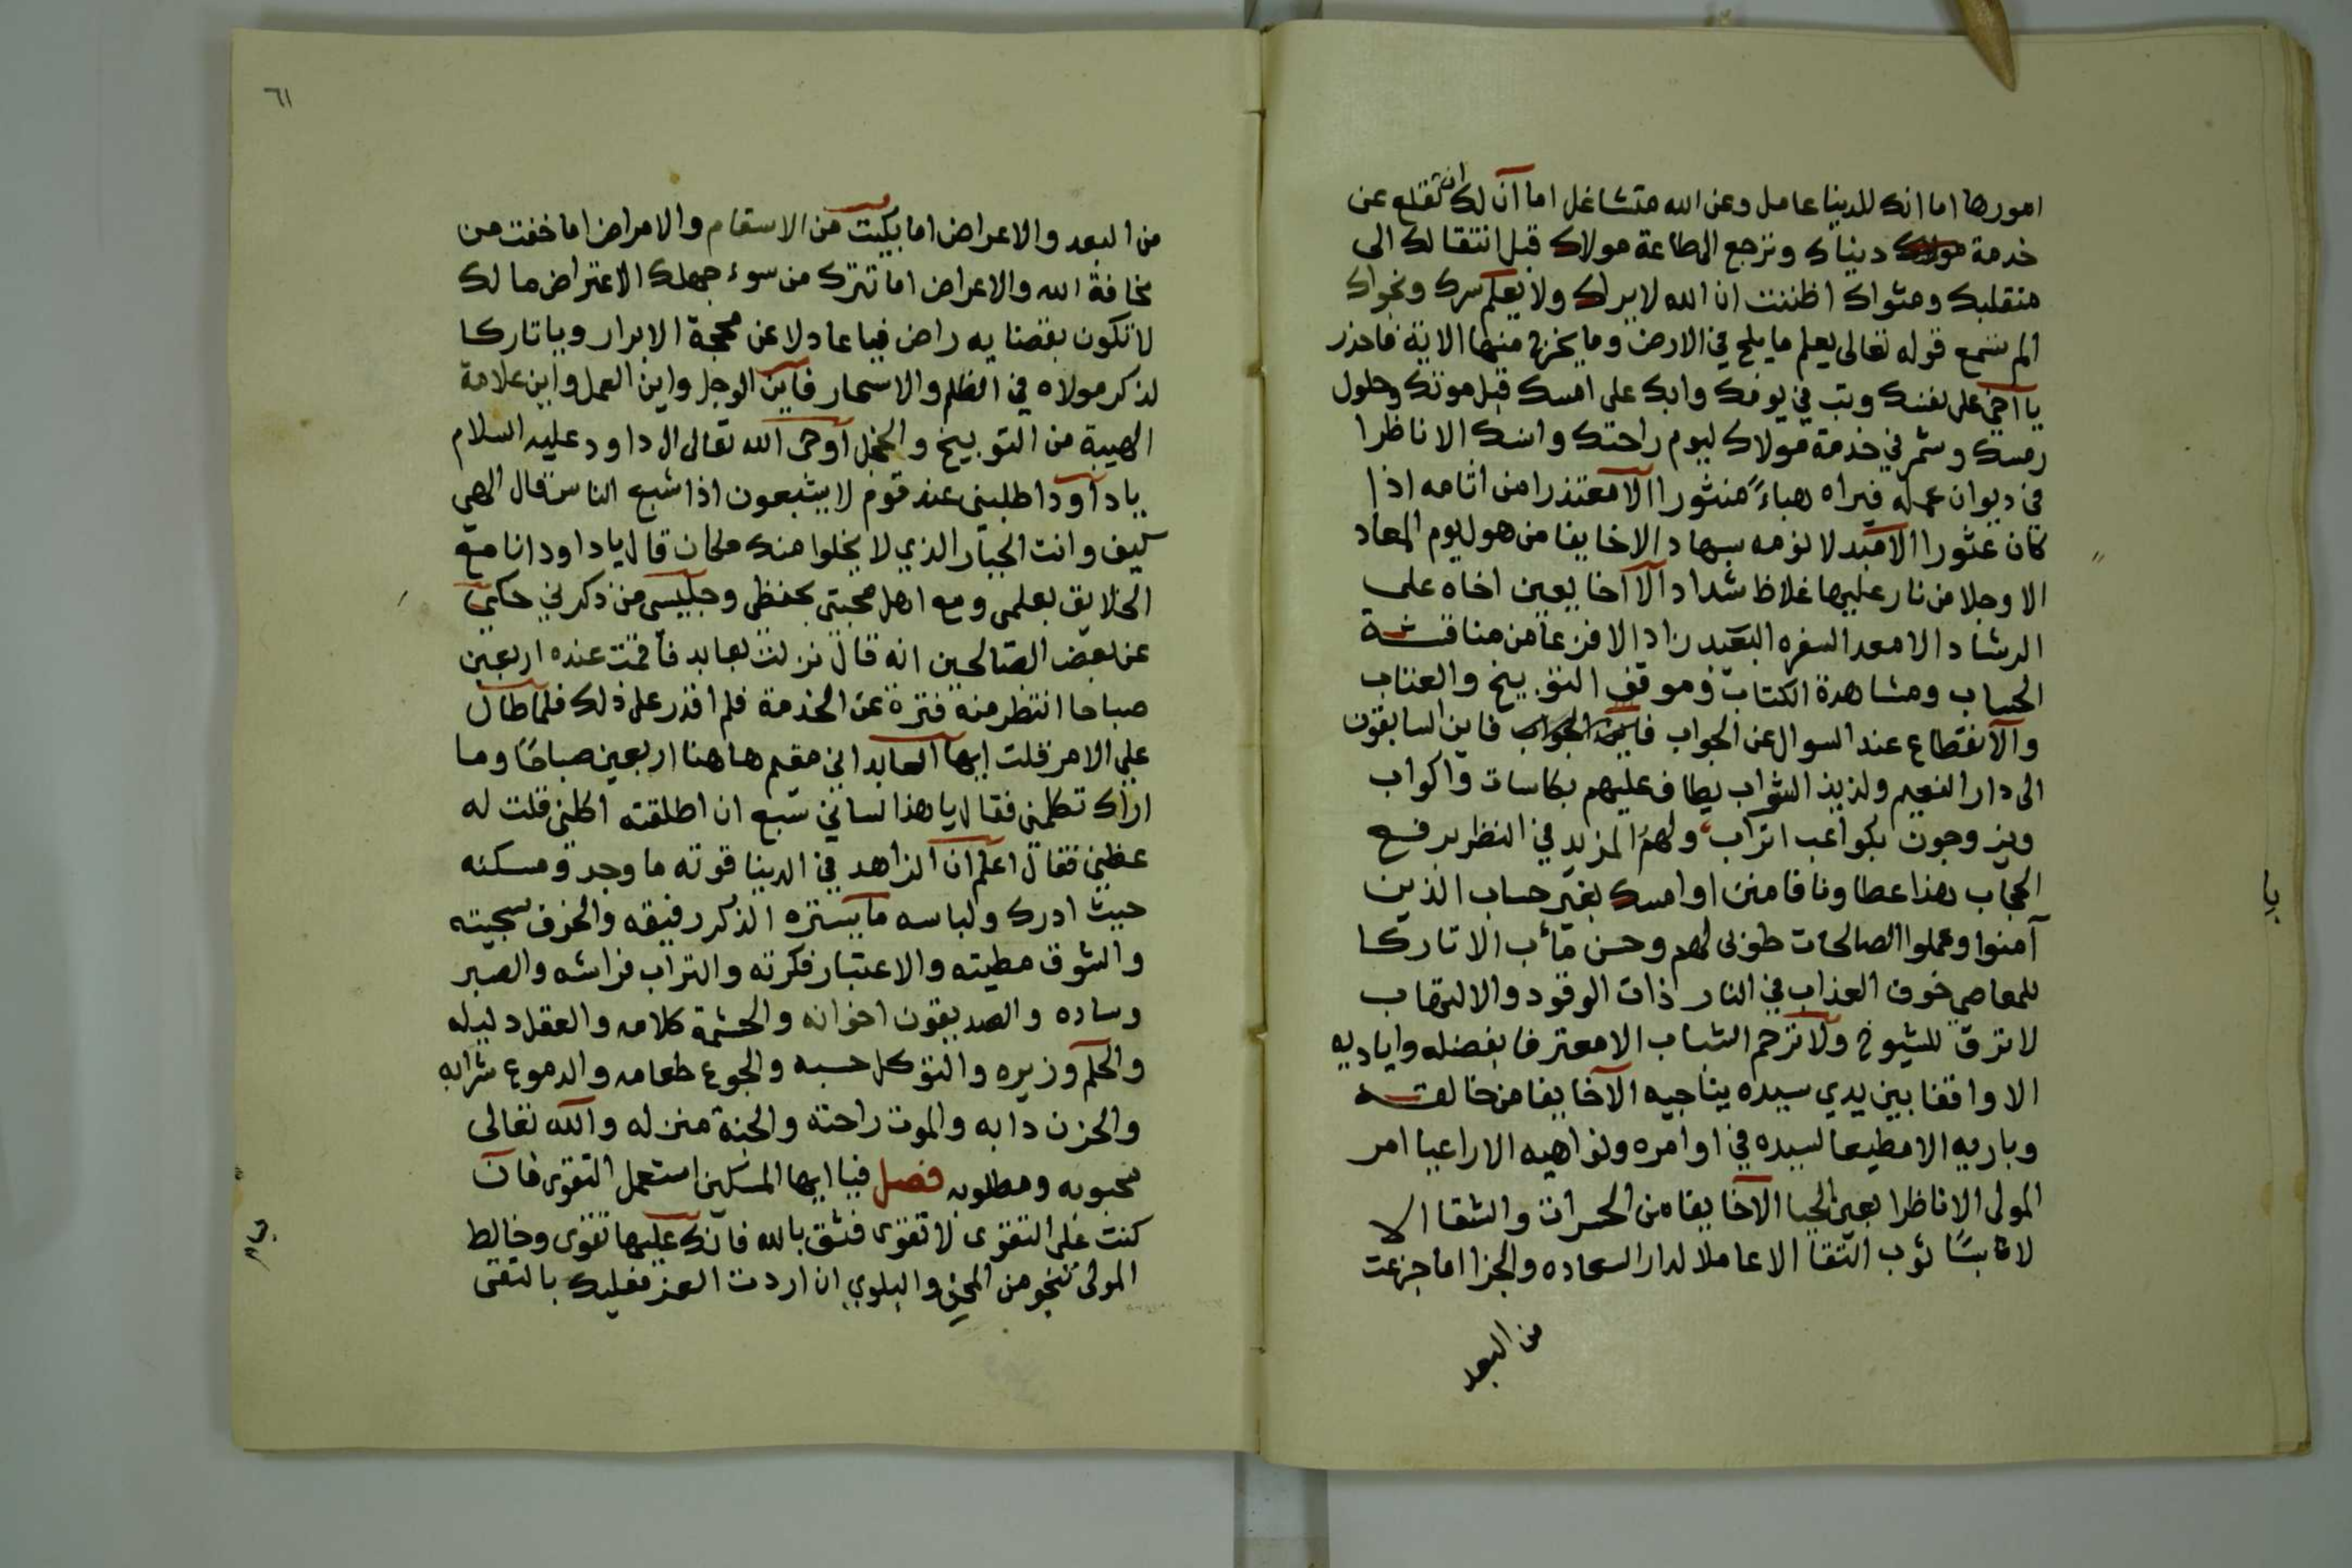 امورها اما انك للدنيا عامل وعن الله متشاغل اما آن لك ان تقلع عن
خدمة دنياك وترجع الى طاعة مولاك قبل انتقالك الى
منقلبك ومثواك اظننت ان الله لا يراك ولا يعلم سرك ونجواك
الم تسمع قوله تعالى يعلم ما يلج في الارض وما يخرج منها الاية فاحذر
يا اخي على نفسك وتب في يومك وابك على امسك قبل موتك وحلول
رمسك وشمر في خدمة مولاك ليوم راحتك وانسك الا ناظرا
في ديوان عمله فيراه هباءً منثورا الا معتذرا من اثامه اذا
كان عثورا الا مبدلا نومه بسهاد الا خايفا من هول يوم المعاد
الا وجلا من نار عليها غلاظ شداد الا اخا يعين اخاه على
الرشاد الا معد السفره البعيد زاد الا فزعا من مناقشة
الحساب ومشاهدة الكتاب وموقف التوبيخ والعتاب
والانقطاع عند السوال عن الجواب فاين الجواب فاين السابقون
الى دار النعيم ولذيذ الشراب يطاف عليهم بكاسات واكواب
ويزوجون بكواعب اتراب ولهم المزيد في النظر برفع
الحجاب هذا عطاونا فامنن او امسك بغير حساب الذين
آمنوا وعملوا الصالحات طوبى لهم وحسن مأب الا تاركا
للمعاصي خوف العذاب في النار ذات الوقود والالتهاب
لا ترق للشيوخ ولا ترحم الشباب الا معترفا بفضله واياديه
الا واقفا بين يدي سيده يناجيه الا خايفا من خالقه
وباريه الا مطيعا لسيده في اوامره ونواهيه الا راعيا امر
المولى الا ناظرا بعين الحيا الا خايفا من الحسرات والشقا الا
لابسًا ثوب التقا الا عاملا لدار السعاده والجزا اما جزعت
من البعد
٦١
من البعد والاعراض اما بكيت من الاسقام والامراض اما خفت من
مخافة الله والاعراض اما تترك من سوء جهلك الاعتراض مالك
لا تكون بقضايه راض فيا عادلا عن محجة الابرار ويا تاركا
لذكر مولاه في الظلم والاسحار فاين الوجل واين العمل واين علامة
الهيبة من التوبيخ والخجل اوحى الله تعالى الى داود عليه السلام
يا داود اطلبني عند قوم لا يشبعون اذا شبع الناس قال الهي
كيف وانت الجبار الذي لا يخلوا منك مكان قال يا داود انا مع
الخلايق بعلمي ومع اهل محبتي بحفظي وجليس من ذكرني حكي
عن بعض الصالحين انه قال نزلت بعابد فاقمت عنده اربعين
صباحا انتظر منه فترة عن الخدمة فلم اقدر على ذلك فلما طال
علي الامر قلت ايها العابد اني مقيم هاهنا اربعين صباحًا وما
اراك تكلمني فقال يا هذا لساني سبع ان اطلقته اكلني قلت له
عظني فقال اعلم ان الزاهد في الدنيا قوته ما وجد ومسكنه
حيث ادرك ولباسه ما يستره الذكر رفيقه والخوف سجيته
والشوق مطيته والاعتبار فكرته والتراب فراشه والصبر
وساده والصديقون اخوانه والحشمة كلامه والعقل دليله
والحلم وزيره والتوكل حسبه والجوع طعامه والدموع شرابه
والحزن دابه والموت راحته والجنة منزله والله تعالى
محبوبه ومطلوبه فصل فيا ايها المسكين استعمل التقوى فان
كنت على التقوى لا تقوى فثق بالله فانك عليها تقوى وخالط
المولى تنجو من المحن والبلوي ان اردت العز فعليك بالتقى